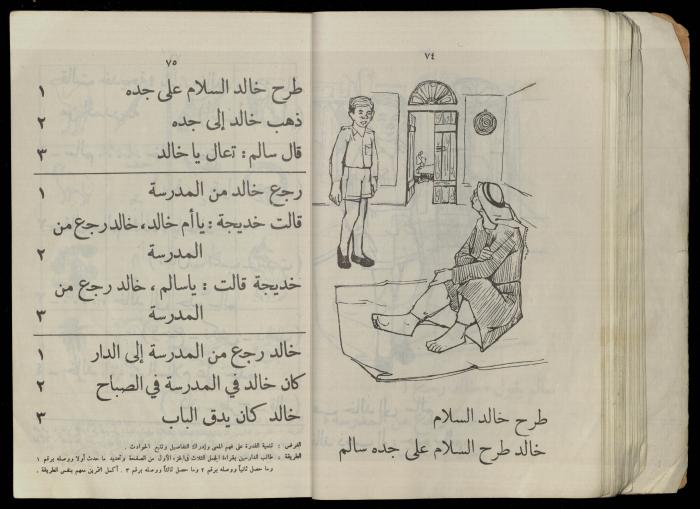 ٧٤
طرح خالد السلام
خالد طرح السلام على جده سالم
٧٥
طرح خالد السلام على جده ١
ذهب خالد إلى جده ٢
قال سالم : تعال يا خالد ٣
رجع خالد من المدرسة ١
قالت خديجة : يا أم خالد، خالد رجع من
المدرسة ٢
خديجة قالت : ياسالم ، خالد رجع من
المدرسة ٣
خالد رجع من المدرسة إلى الدار ١
كان خالد في المدرسة في الصباح ٢
خالد كان يدق الباب ٣
الغرض : تنمية القدرة على فهم المعنى وإدراك التفاصيل وتتابع الحوادث .
الطريقة : طالب الدارسين بقراءة الجمل الثلاث في الجزء الأول من الصفحة وتحديد ما حدث أولا ووصله برقم ١
وما حصل ثانياً ووصله برقم ٢ وما حصل ثالثاً ووصله برقم ٣ . أكمل التمرين معهم بنفس الطريقة .